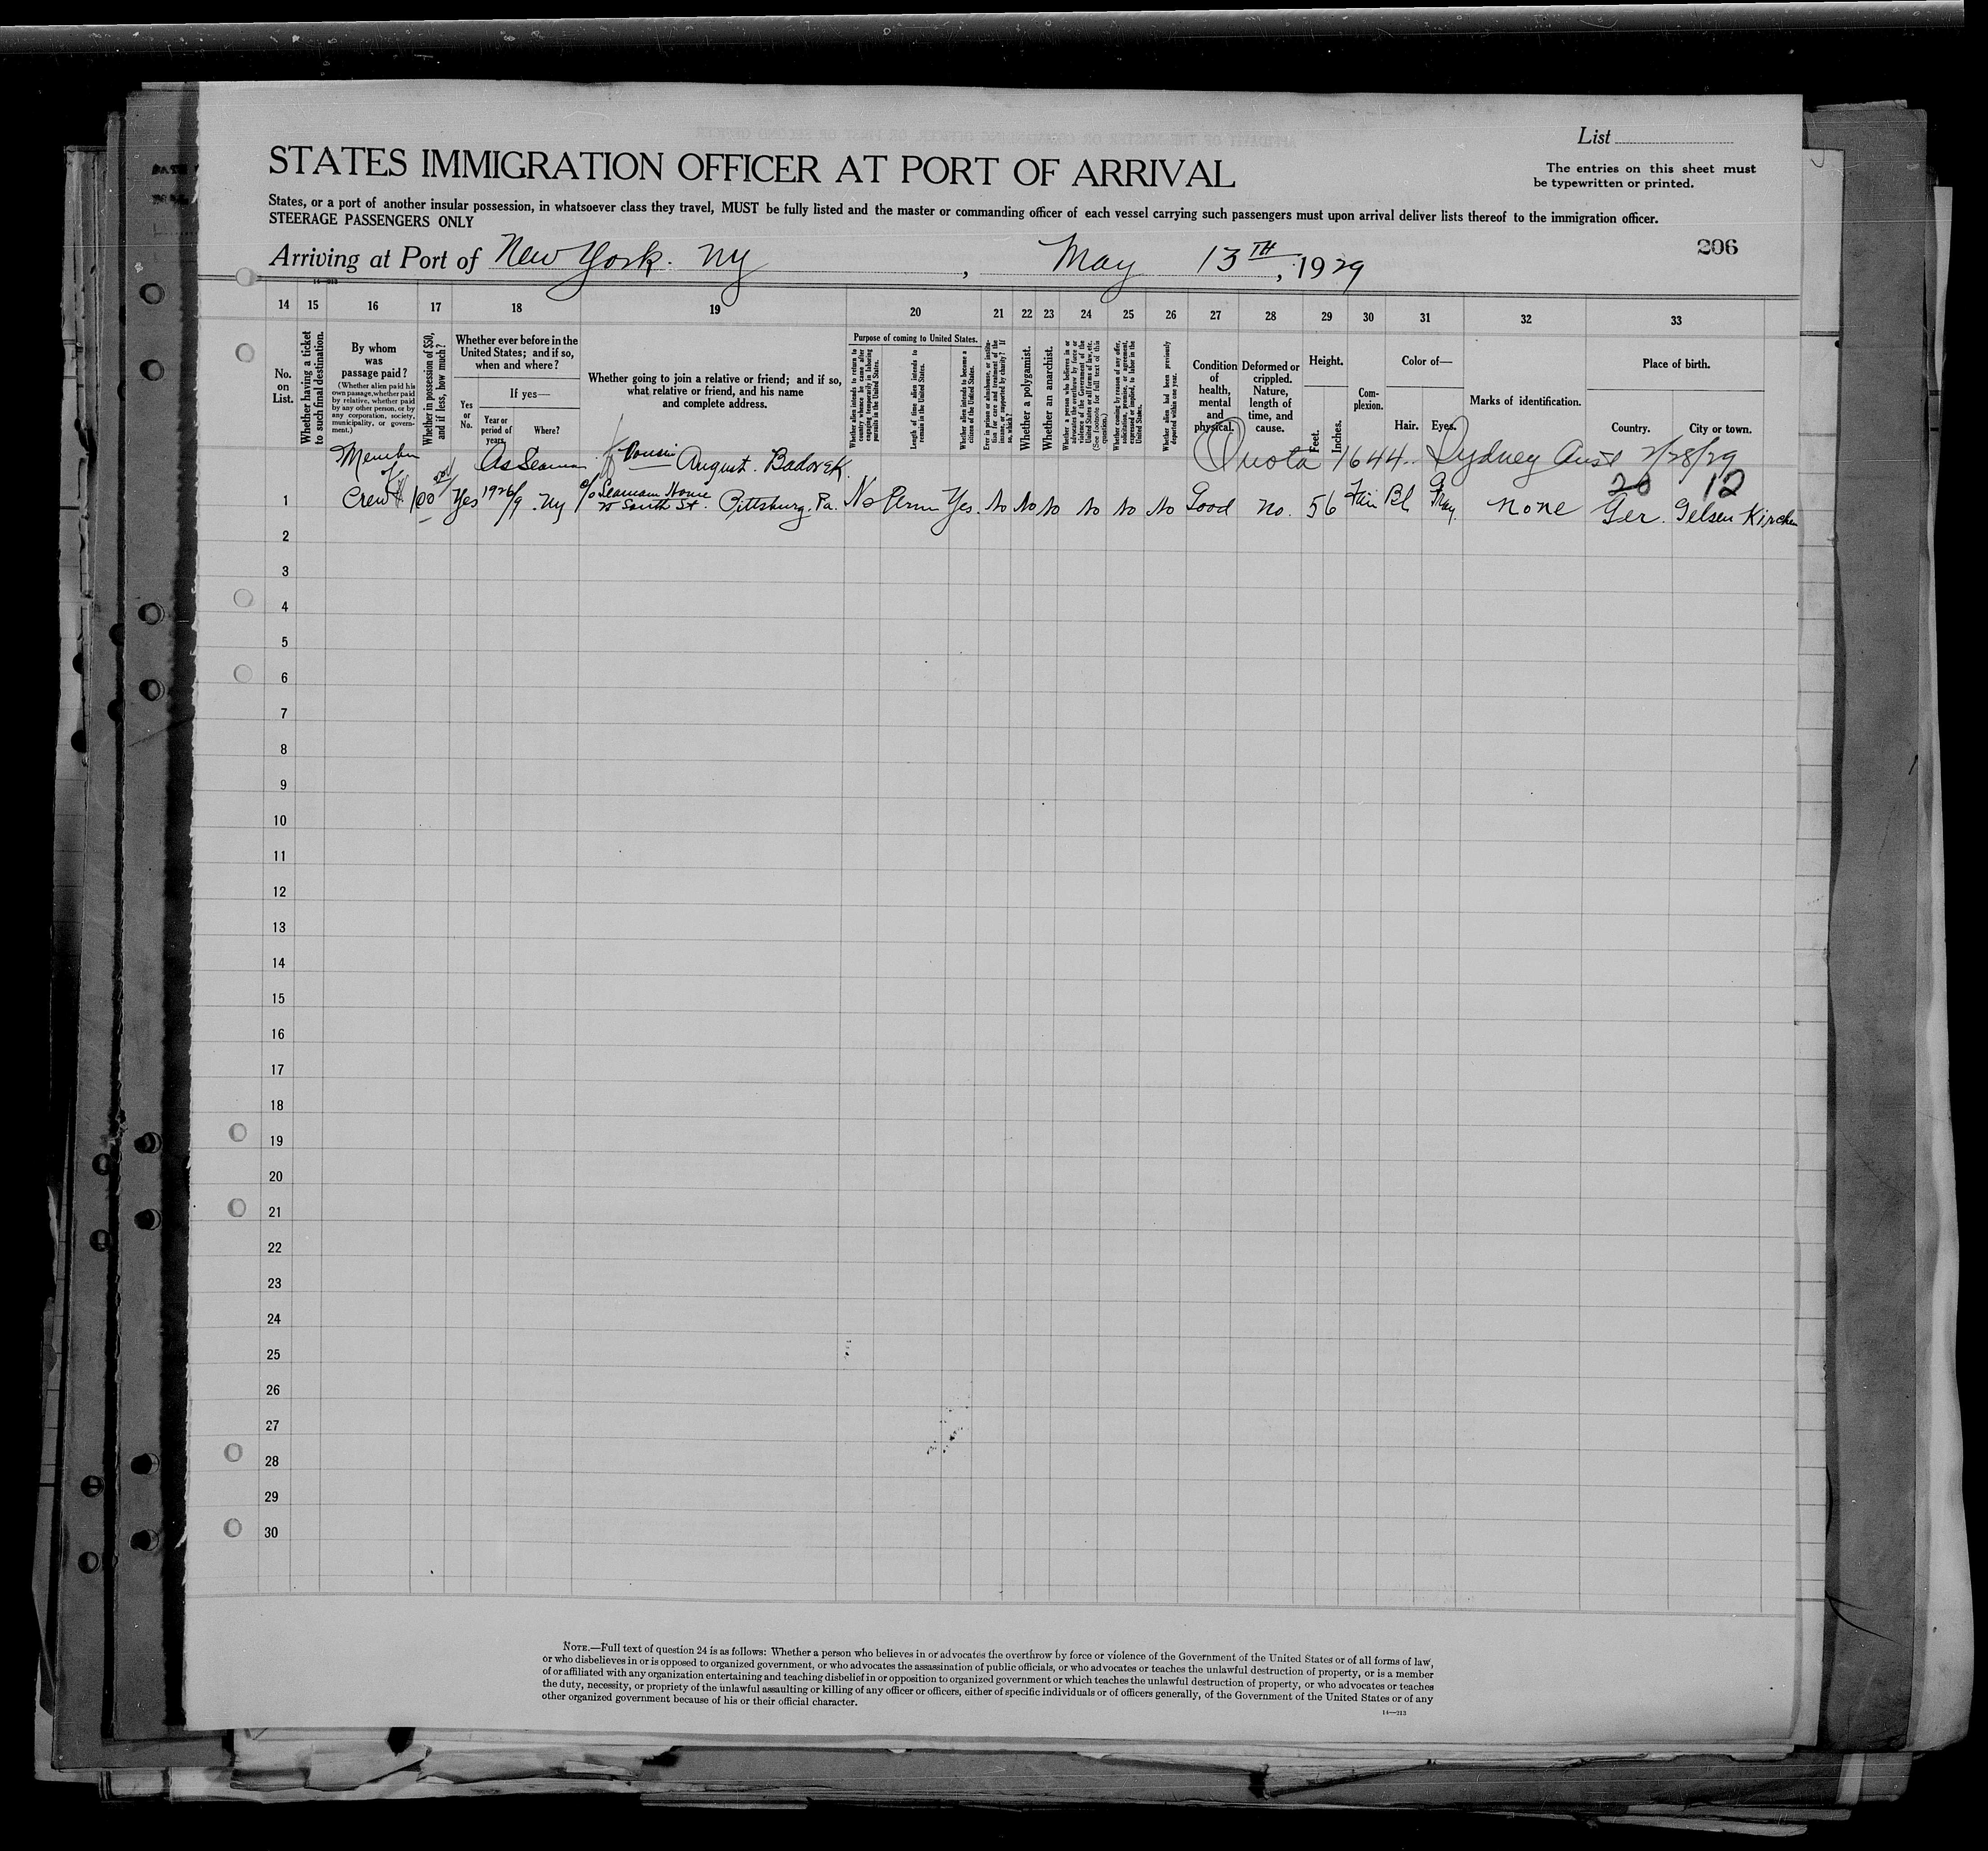 List
STATES IMMIGRATION OFFICER AT PORT OF ARRIVAL
The entries on this sheet must
be typewritten or printed.
States, or a port of another insular possession, in whatsoever class they travel, MUST be fully listed and the master or commanding officer of each vessel carrying such passengers must upon arrival deliver lists thereof to the immigration officer.
STEERAGE PASSENGERS ONLY
206
Arriving at Port of New York. NY, May 13TH, 1929
14—213
14 15 16 17 18 19 20 21 22 23 24 25 26 27 28 29 30 31 32 33
No.
on
List.
Whether having a ticket
to such final destination.
By whom
was
passage paid?
(Whether alien paid his
own passage, whether paid
by relative, whether paid
by any other person, or by
any corporation, society,
municipality, or govern-
ment.)
Whether in possession of $50,
and if less, how much?
Whether ever before in the
United States; and if so,
when and where?
Yes
or
No.
If yes—
Year or
period of
years.
Where?
Whether going to join a relative or friend; and if so,
what relative or friend, and his name
and complete address.
Purpose of coming to United States.
Whether alien intends to return to
country whence he came after
engaging temporarily in laboring
pursuits in the United States.
Length of time alien intends to
remain in the United States.
Whether alien intends to become a
citizen of the United States.
Ever in prison or almshouse, or institu-
tion for care and treatment of the
insane, or supported by charity? If
so, which?
Whether a polygamist.
Whether an anarchist.
Whether a person who believes in or
advocates the overthrow by force or
violence of the Government of the
United States or all forms of law, etc.
(See footnote for full text of this
question.)
Whether coming by reason of any offer,
solicitation, promise, or agreement,
expressed or implied, to labor in the
United States.
Whether alien had been previously
deported within one year.
Condition
of
health,
mental
and
physical.
Deformed or
crippled.
Nature,
length of
time, and
cause.
Height.
Feet.
Inches.
Com-
plexion.
Color of—
Hair. Eyes.
Marks of identification.
Place of birth.
Country. City or town.
Member As Seaman Cousin August Badorek Quota 1644 Sydney Aust 2/28/29
of 20 12
1 Crew 100 Yes 1926/9 NY c/o Seamans Home Pittsburg, Pa. No Perm Yes. No No No No No No Good no. 5 6 Fair Bl Gray. none Ger. Gelsen Kirchen
South St.
2
3
4
5
6
7
8
9
10
11
12
13
14
15
16
17
18
19
20
21
22
23
24
25
26
27
28
29
30
NOTE.—Full text of question 24 is as follows: Whether a person who believes in or advocates the overthrow by force or violence of the Government of the United States or of all forms of law,
or who disbelieves in or is opposed to organized government, or who advocates the assassination of public officials, or who advocates or teaches the unlawful destruction of property, or is a member
of or affiliated with any organization entertaining and teaching disbelief in or opposition to organized government or which teaches the unlawful destruction of property, or who advocates or teaches
the duty, necessity, or propriety of the unlawful assaulting or killing of any officer or officers, either of specific individuals or of officers generally, of the Government of the United States or of any
other organized government because of his or their official character.
14—213